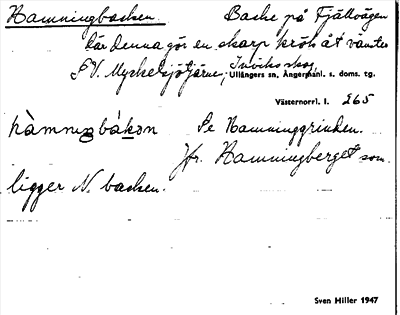 Hamningbacken. Backe på Fjällvägen
där denna gör en skarp krök åt vänster
S.V. Myckelsjötjärn, Invikss skog,
Ullångers sn, Ångermanl. s. doms. tg.
Västernorrl. l. 265
hàmnıŋbákən Se Hamninggrinden.
Jfr. Hamningberget som
ligger N. backen.
Sven Hiller 1947